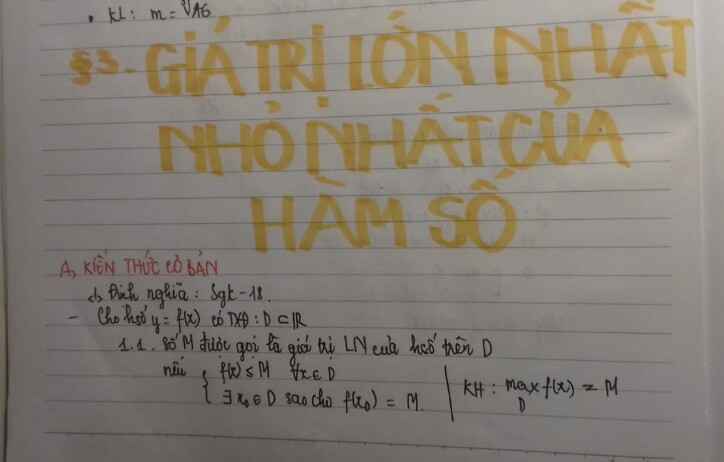 • KL: m = ∛16
§3. GIÁ TRỊ LỚN NHẤT
NHỎ NHẤT CỦA
HÀM SỐ
A, KIẾN THỨC CƠ BẢN
1, Định nghĩa: Sgk - 18.
- Cho hsố y = f(x) có TXĐ: D ⊂ ℝ
1.1. Số M được gọi là giá trị LN của hsố trên D
nếu { f(x) ≤ M ∀x ∈ D
∃ x₀ ∈ D sao cho f(x₀) = M. | KH: max f(x) = M
D